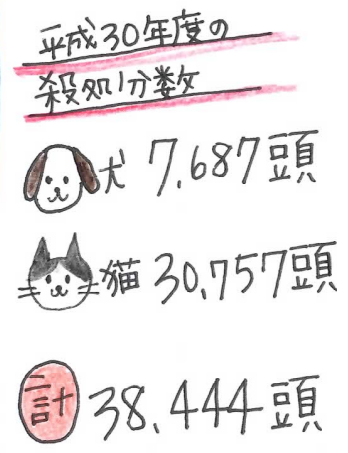 平成30年度の
殺処分数
犬 7,687頭
猫 30,757頭
計 38,444頭